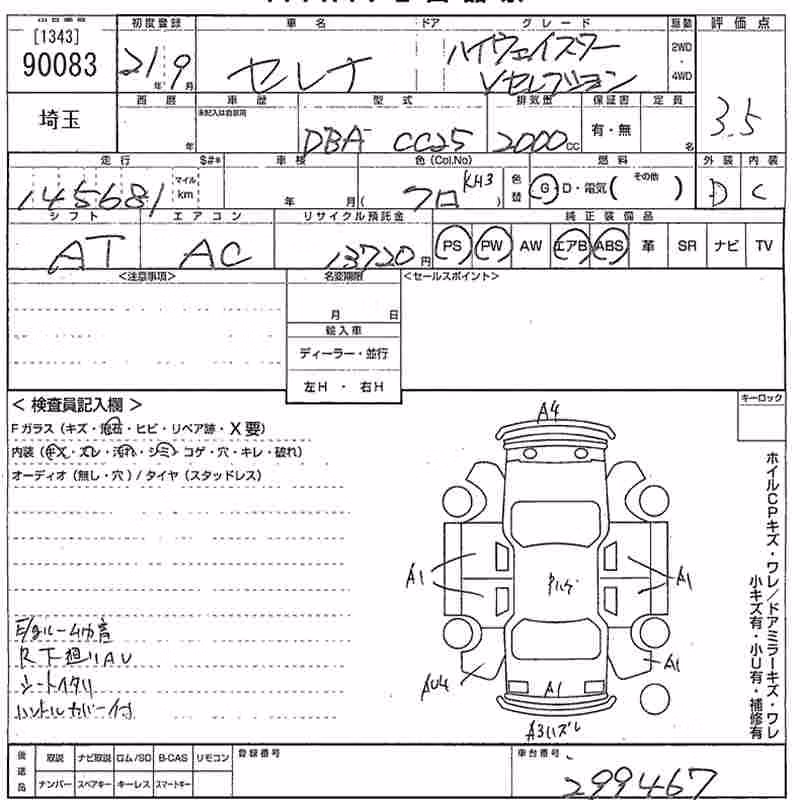 [1343]
90083
埼玉
初度登録
21 9
年 月
車名
セレナ
ドア
グレード
ハイウェイスター
Vセレクション
2WD
・
4WD
評価点
3.5
西暦
年
車歴
未記入は自家用
型式
DBA CC25
排気量
2000 cc
保証書
有・無
定員
名
走行
$#*
145681
マイル
km
車検
年 月
色(Col.No)
クロ
( KH3 )
色替
燃料
G・D・電気( その他 )
外装
D
内装
C
シフト
AT
エアコン
AC
リサイクル預託金
13720 円
純正装備品
PS PW AW エアB ABS 革 SR ナビ TV
<注意事項>
名変期限
月 日
輸入車
ディーラー・並行
左H ・ 右H
<セールスポイント>
< 検査員記入欄 >
Fガラス(キズ・飛石・ヒビ・リペア跡・X要)
内装(キズ・スレ・汚れ・シミ コゲ・穴・キレ・破れ)
オーディオ(無し・穴)/タイヤ(スタッドレス)
E/gルーム内音
R下廻りAU
シートイタミ
ハンドルカバー付
キーロック
ホイルCPキズ・ワレ/ドアミラーキズ・ワレ
小キズ有・小U有・補修有
A4
A1
A1
AU4
A1
A1
A3ハズレ
後送品
取説 ナビ取説 ロム/SD B-CAS リモコン
ナンバー スペアキー キーレス スマートキー
登録番号
車台番号
299467